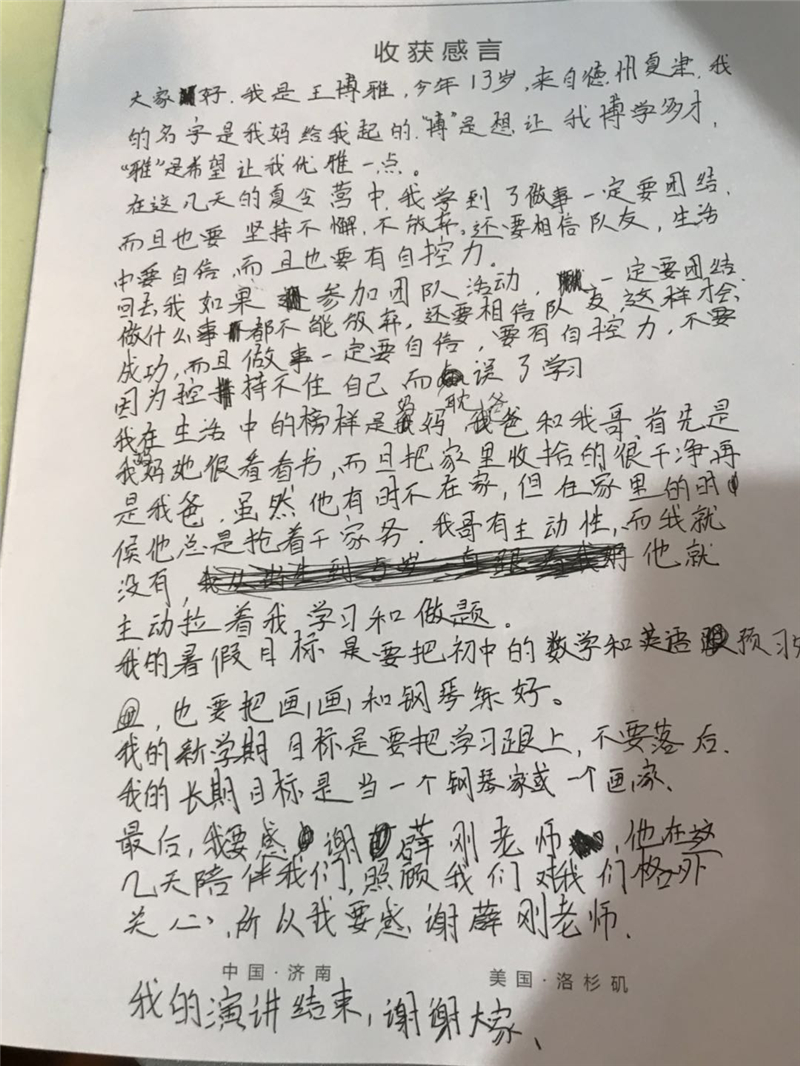 收获感言
大家好.我是王博雅,今年13岁,来自德.州夏津.我
的名字是我妈给我起的."博"是想让我博学多才,
"雅"是希望让我优雅一点。
在这几天的夏令营中.我学到了做事一定要团结.
而且也要坚持不懈,不放弃,还要相信队友,生活
中要自信,而且也要有自控力。
回去我如果参加团队活动,一定要团结
做什么事都不能放弃,还要相信队友,这样才会
成功,而且做事一定要自信,要有自控力,不要
因为控持不住自己而耽误了学习
我在生活中的榜样是我妈,我爸和我哥.首先是
我妈她很看看书,而且把家里收拾的很干净再
是我爸,虽然他有时不在家,但在家里的时
候他总是抢着干家务.我哥有主动性,而我就
没有,他就
主动拉着我学习和做题。
我的暑假目标是要把初中的数学和英语预习
,也要把画画和钢琴练好。
我的新学期目标是要把学习跟上,不要落后.
我的长期目标是当一个钢琴家或一个画家.
最后,我要感谢薛刚老师,他在这
几天陪伴我们,照顾我们对我们格外
关心,所以我要感谢薛刚老师.
中国·济南 美国·洛杉矶
我的演讲结束,谢谢大家、